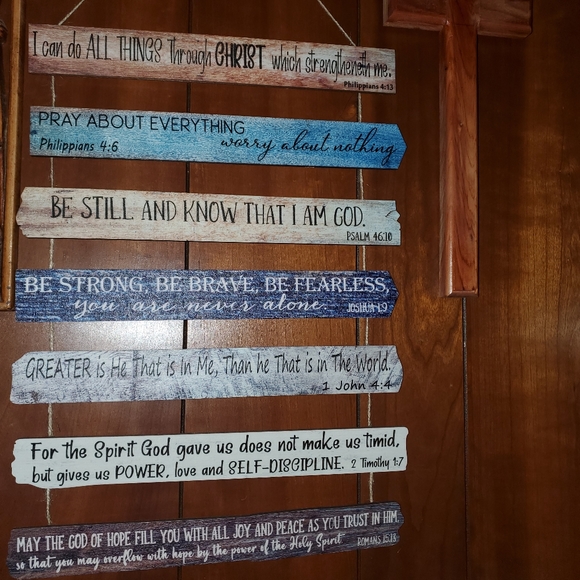 I can do ALL THINGS through CHRIST which strengtheneth me.
Philippians 4:13
PRAY ABOUT EVERYTHING
worry about nothing
Philippians 4:6
BE STILL AND KNOW THAT I AM GOD.
PSALM 46:10
BE STRONG, BE BRAVE, BE FEARLESS,
you are never alone.
JOSHUA 1:9
GREATER is He That is in Me, Than he That is in The World.
1 John 4:4
For the Spirit God gave us does not make us timid,
but gives us POWER, love and SELF-DISCIPLINE. 2 Timothy 1:7
MAY THE GOD OF HOPE FILL YOU WITH ALL JOY AND PEACE AS YOU TRUST IN HIM
so that you may overflow with hope by the power of the Holy Spirit
ROMANS 15:13